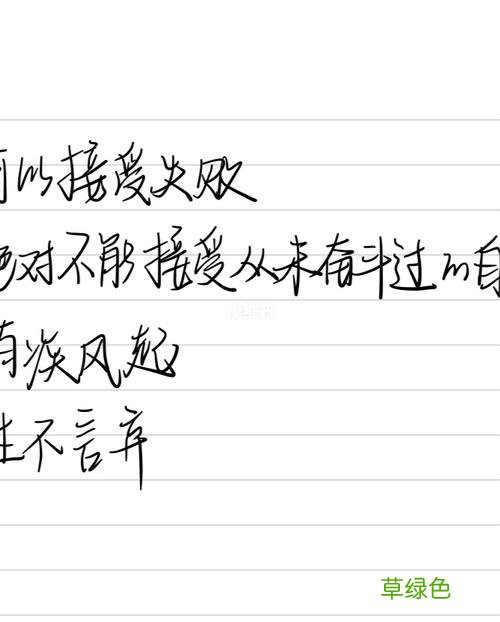 可以接受失败
绝对不能接受从未奋斗过的自
有疾风起
生不言弃
小红书
草绿色